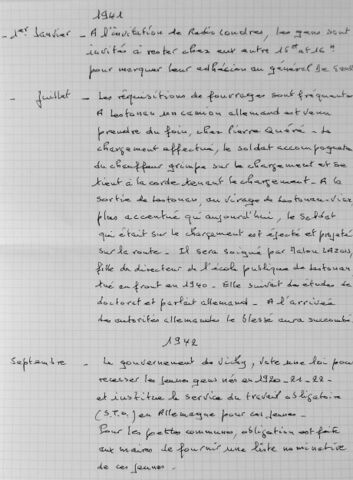 1941
- 1er Janvier - A l'invitation de Radio Londres, les gens sont
invités à rester chez eux entre 15H et 16H
pour marquer leur adhésion au général De Gaulle
- Juillet - Les réquisitions de fourrages sont fréquentes
A Lostanou un camion allemand est venu
prendre du foin, chez Pierre Quéré - Le
chargement effectué, le soldat accompagnateur
du chauffeur grimpe sur le chargement et se
tient à la corde tenant le chargement - A la
sortie de Lostanou, au virage de Lostanou-Vian
plus accentué qu'aujourd'hui, le soldat
qui était sur le chargement est éjecté et projeté
sur la route - Il sera soigné par Malou
fille du directeur de l'école publique de Lostanou
tué en front en 1940 - Elle suivait des études de
doctorat et parlait allemand - A l'arrivée
des autorités allemandes le blessé aura succombé
1942
Septembre - Le gouvernement de Vichy, vote une loi pour
recenser les jeunes gens nés en 1920-21-22 -
et institue le service du travail obligatoire
(S.T.O.) en Allemagne pour ces jeunes -
Pour les petites communes, obligation est faite
aux maires de fournir une liste nominative
de ces jeunes -